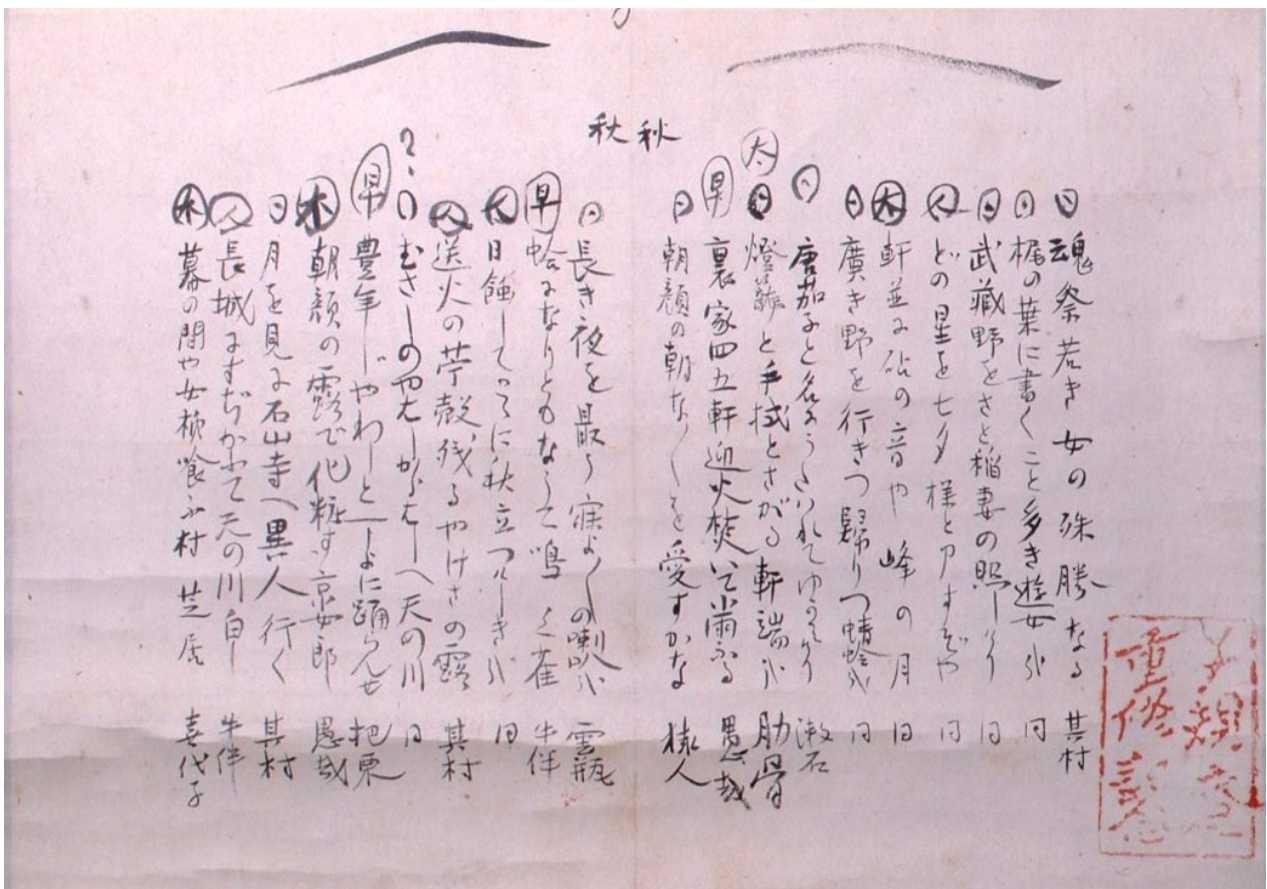 秋
日 魂祭若き女の殊勝なる 其村
日 梶の葉に書くこと多き遊女哉 同
日 武蔵野をさと稲妻の照しけり 同
どの星を七夕様と申すぞや 同
木 軒並み砧の音や峰の月 同
日 廣き野を行きつ歸りつ蜻蛉哉 同
日 唐茄子と名にうたはれてゆがみけり 漱石
木 日 燈籠と手拭とさがる軒端哉 肋骨
早 裏家四五軒迎火焚いて 愚哉
日 朝顔の朝な〳〵を愛すかな 猿人
秋
日 長き夜を最う寐よ〳〵の喇叭哉 雲瓶
早 蛤になりともならで鳴く雀 牛伴
日蝕してつひに秋立つ 同
送火の苧殻残るやけさの露 其村
むさしのや 天の川 同
早 豊年じやわしと一しよに踊らんせ 把栗
木 朝顔の露で化粧す京女郎 愚哉
日 月を見に石山寺へ異人行く 其村
人 長城にすぢかふて天の川白し 牛伴
木 幕の間や女柿喰ふ村芝居 喜代子